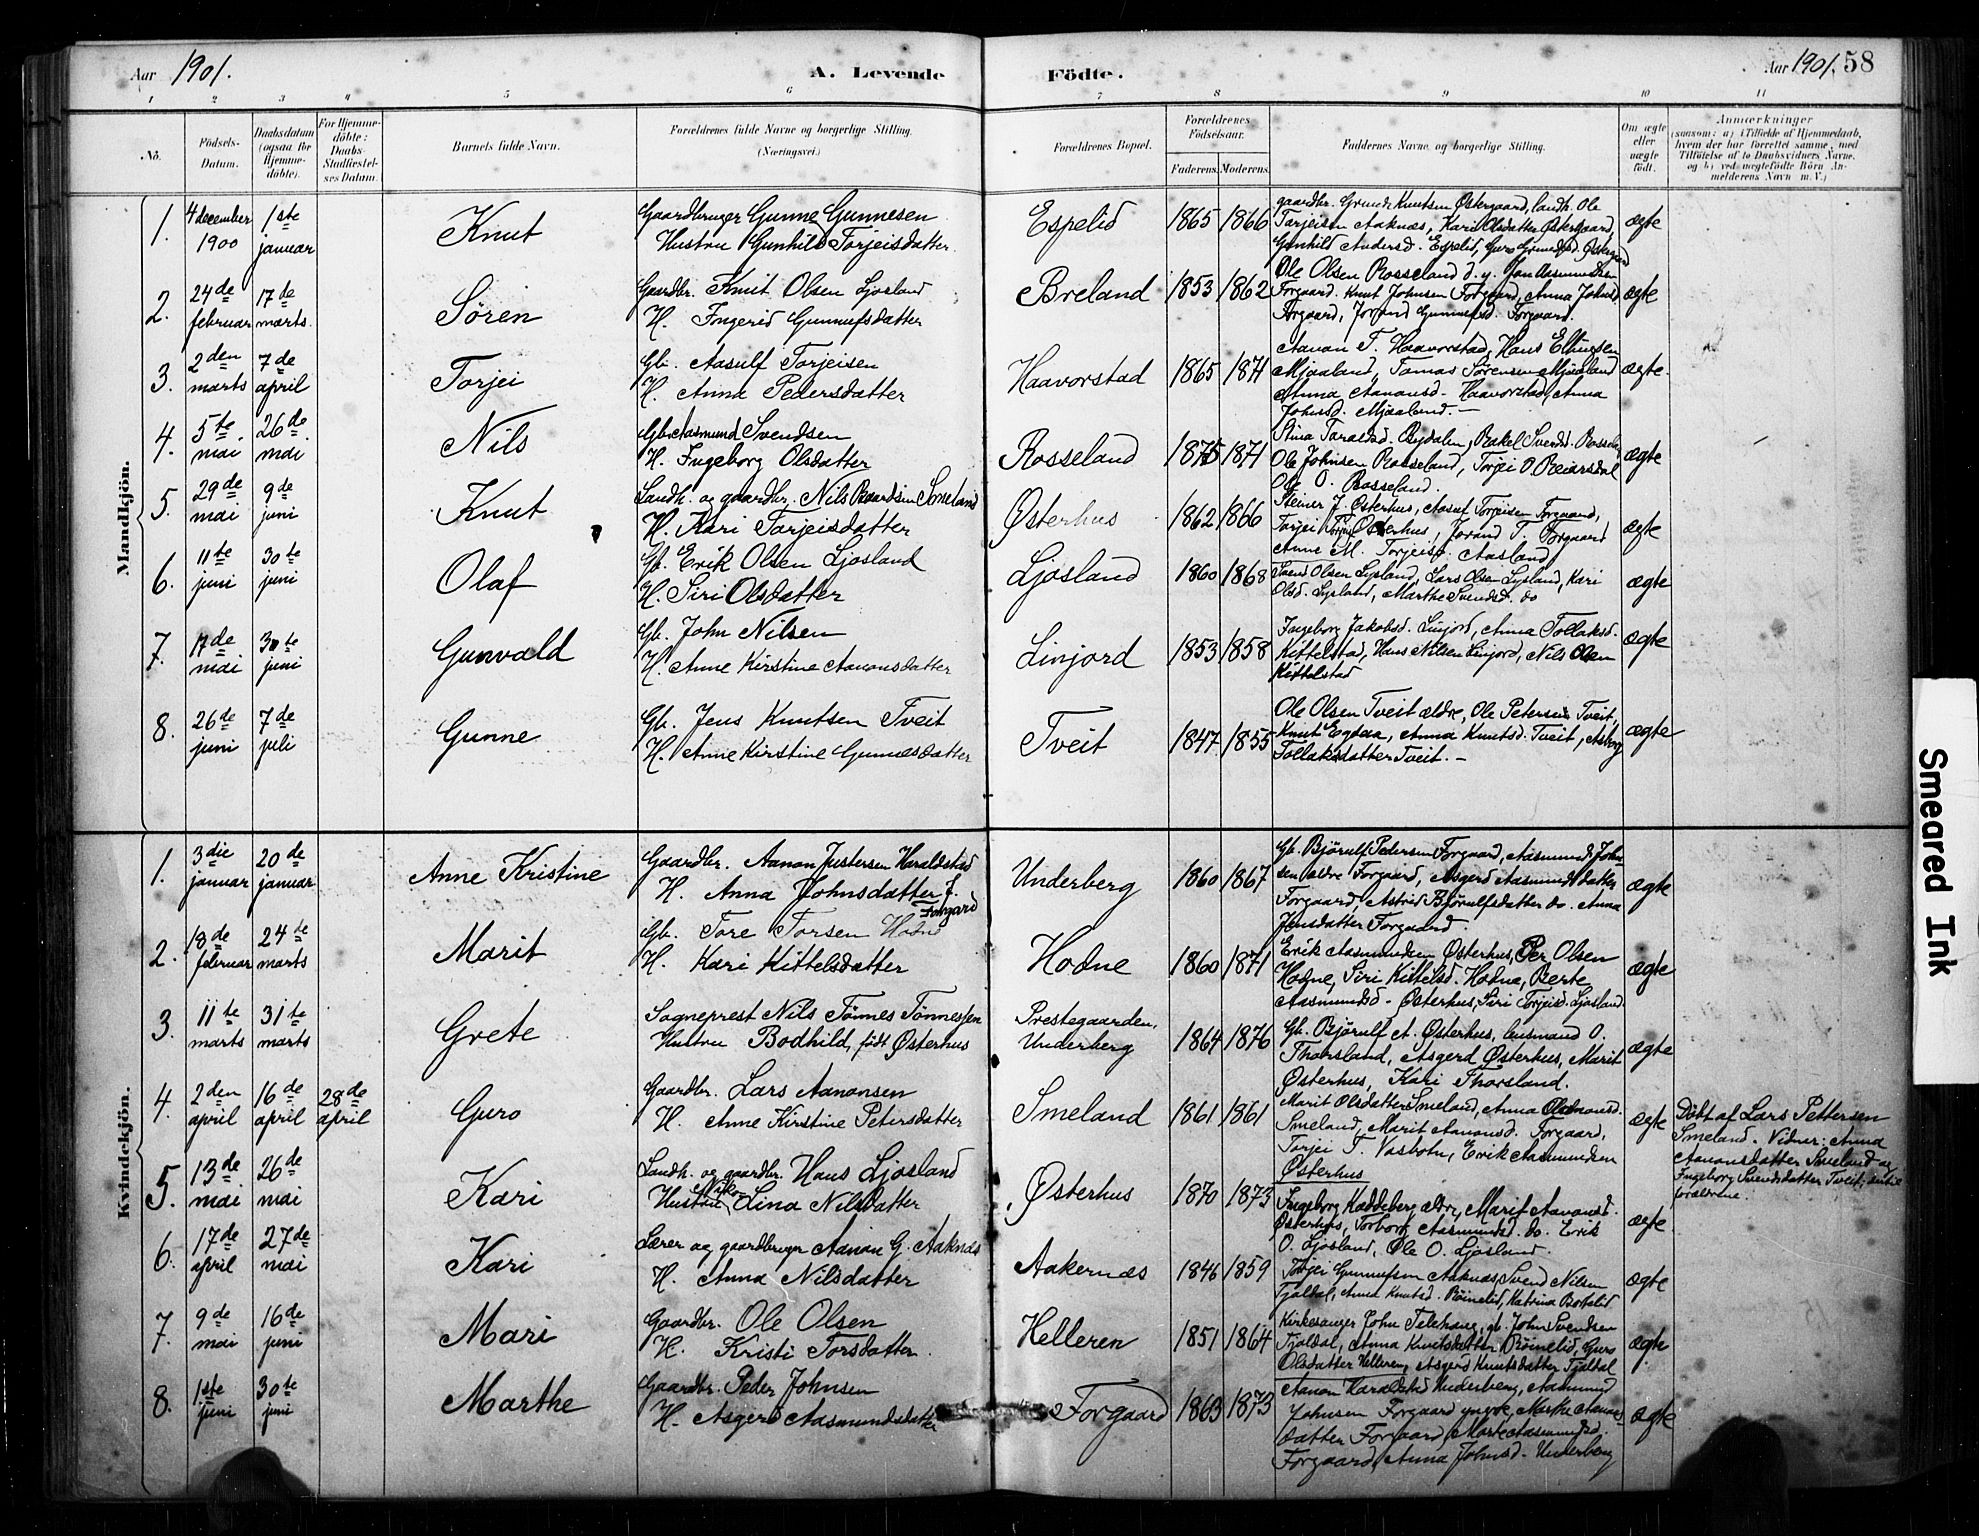 Aar 1901. A. Levende Födte. Aar 1901. 58
1 2 3 4 5 6 7 8 9 10 11
No.
Födsels-Datum.
Daabsdatum (ogsaa for Hjemme-döbte).
For Hjemme-döbte: Daabs-Stadfæstel-ses Datum.
Barnets fulde Navn.
Forældrenes fulde Navne og borgerlige Stilling.
(Næringsvei.)
Forældrenes Bopæl.
Forældrenes Fødselsaar.
Faderens. Moderens.
Faddernes Navne og borgerlige Stilling.
Om ægte eller uægte født.
Anmærkninger
(saasom: a) i Tilfælde af Hjemmedaab,
hvem der har forrettet samme, med
Tilføielse af to Daabsvidners Navne,
og b) ved uægtefödte Börn An-
melderens Navn m. V.)
Mandkjön.
1. 4 december 1900 1ste januar Knut
Gaardbruger Gunne Gunnesen
Hustru Gunhild Torjeisdatter
Espelid 1865 1866
gaardbr. Gunde Knutsen Østergaard, landh. Ole
Tarjeisen Aaknæs, Kari Olsdatter Østergaard,
Gunhild Andersd. Espelid, Guro Østergaard
ægte
2. 24de februar 17de marts Sören
Gaardbr. Knut Olsen Ljosland
H. Ingerid Gunnufsdatter
Breland 1853 1862
Ole Olsen Rosseland d. y. Jon Aasmundsen
Forgaard. Knut Johnsen Forgaard, Anna Johnsd.
Forgaard, Jorand Gunnufsd. Forgaard.
ægte
3. 2den marts 7de april Torjei
Gb. Aasulf Torjeisen
H. Anna Pedersdatter
Haavorstad 1865 1871
Aanon T. Haavorstad, Hans Ellingsen
Mjaaland, Tomas Sørensen Mjaaland
Anna Aanonsd. Haavorstad, Anna
Johnsd. Mjaaland. –
ægte.
4. 5te mai 26de mai Nils
Gb. Aasmund Svendsen
H. Ingeborg Olsdatter
Rosseland 1875 1871
Stina Taraldsd. Rydalen, Rakel Svendsd. Rosseland
Ole Johnsen Rosseland, Torjei O. Reiarsdal
Ole O. Rosseland.
ægte
5. 29de mai 9de juni Knut
Landh. og gaardbr. Nils Smeland
H. Kari Tarjeisdatter
Østerhus 1862 1866
Steiner J. Østerhus, Aasuf Torjeisen Forgaard,
Tarjei Østerhus, Jorand T. Forgaard
Anne M. Torjeisd. Aasland
ægte
6. 11te juni 30te juni Olaf
Gb. Erik Olsen Ljosland
H. Siri Olsdatter
Ljosland 1860 1868
Svend Olsen Lysland, Lars Olsen Lysland, Kari
Olsd. Lysland, Marthe Svendsd. do
ægte
7. 17de mai 30te juni Gunvald
Gb. John Nilsen
H. Anne Kirstine Aanonsdatter
Linjord 1853 1858
Ingeborg Jakobsd. Linjord, Anna Tollaksd.
Kittelstad, Hans Nilsen Linjord, Nils Olsen
Kittelstad
ægte
8. 26de juni 7de juli Gunne
Gb. Jens Knutsen Tveit
H. Anne Kirstine Gunnesdatter
Tveit 1847 1855
Ole Olsen Tveit ældre, Ole Petersen Tveit,
Knut Egdaa, Anna Knutsd. Tveit, Asborg
Tollaksdatter Tveit. –
ægte
Kvindekjön.
1. 3die januar 20de januar Anne Kristine
Gaardbr. Aanon Justersen Haraldstad
H. Anna Johnsdatter f. Forgard
Underberg 1860 1867
Gb. Björulf Pedersen Forgaard, Aasmund John-
sen ældre Forgaard, Asgerd Aasmundsdatter
Forgaard, Astrid Björulfsdatter do. Anna
Jensdatter Forgaard.
ægte
2. 18de februar 24de marts Marit
Gb. Tore Torsen Hodne
H. Kari Kittelsdatter
Hodne 1860 1871
Erik Aasmundsen Østerhus, Per Olsen
Hodne, Siri Kittelsd. Hodne, Berte
Aasmundsd. Østerhus, Siri Torjeisd. Ljosland
ægte
3. 11te marts 31te marts Grete
Sogneprest Nils Tönnes Tönnessen
Hustru Bodhild, født Østerhus
Prestegaarden, Underberg 1864 1876
Gb. Björulf A. Østerhus, lensmand O.
Thorsland, Asgerd Østerhus, Marit
Østerhus, Kari Thorsland.
ægte
4. 2den april 16de april 28de april Guro
Gaardbr. Lars Aanonsen
H. Anne Kirstine Petersdatter
Smeland 1861 1861
Marit Olsdatter Smeland, Anna Aanonsd.
Smeland, Marit Aanonsd. Forgaard,
Torjei T. Vasbotn, Erik Aasmundsen
Østerhus
ægte
Döbt af Lars Pettersen
Smeland. Vidner: Anna
Aanonsdatter Smeland og
Ingeborg Svendsdatter Tveit, samt
forældrene.
5. 13de mai 26de mai Kari
Landh. og gaardbr. Hans Ljosland
Hustru Lina Nilsdatter
Østerhus 1870 1873
Ingeborg Kaddeberg ældre, Marit Aanonsd.
Østerhus, Torborg Aasmundsd. do. Erik
O. Ljosland, Ole O. Ljosland.
ægte
6. 17de april 27de mai Kari
Lærer og gaardbruger Aanon G. Aaknes
H. Anna Nilsdatter
Aakernæs 1846 1859
Torjei Gunnufsen Aaknæs, Svend Nilsen
Fjaldal, Anna Knutsd. Röinelid, Katrina
ægte
7. 9de mai 16de juni Mari
Gaardbr. Ole Olsen
H. Kristi Torsdatter.
Helleren 1851 1864
Kirkesanger John Telehaug, gb. John Svendsen
Fjaldal, Anna Knutsdatter Röinelid, Guro
Olsdatter Helleren, Asgerd Knutsdatter Fjaldal
ægte
8. 1ste juni 30te juni Marthe
Gaardbr. Peder Johnsen
H. Asgerd Aasmundsdatter
Forgaard 1863 1873
Aanon Haraldstad Underberg, Aasmund
Johnsen Forgaard yngre, Marthe Aanons-
datter Forgaard, Marte Aasmundsd.
Forgaard, Anna Johnsd. Underberg
ægte
Smeared Ink